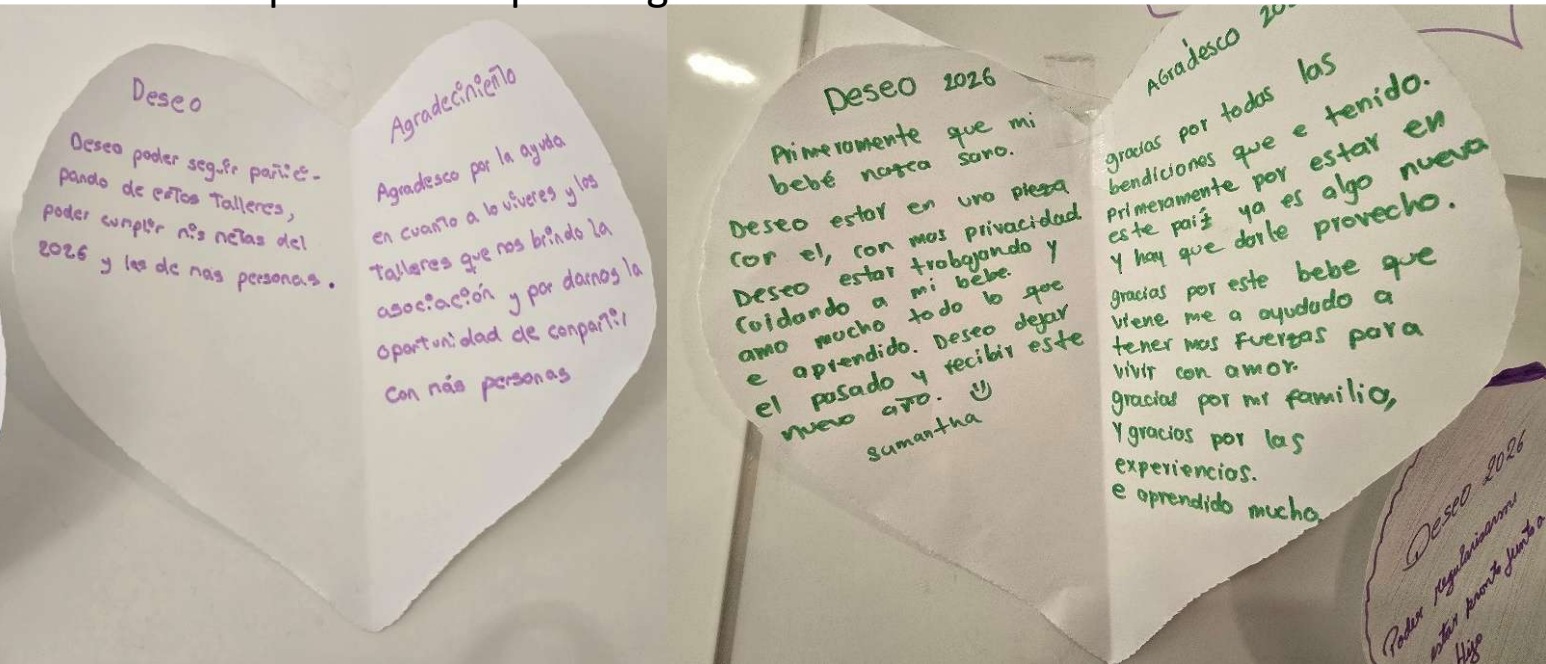 Deseo
Deseo poder seguir partici-
pando de estos Talleres,
poder cunplir nis netas del
2026 y las de nas personas.
Agradeciniento
Agradesco por la ayuda
en cuanto a lo viveres y los
Talleres que nos brindo la
asociación y por darnos la
oportunidad de conpartir
con nás personas
Deseo 2026
Primeramente que mi
bebé nazca sano.
Deseo estar en una pieza
con el, con mas privacidad.
Deseo estar trabajando y
cuidando a mi bebe.
amo mucho todo lo que
e aprendido. Deseo dejar
el pasado y recibir este
nuevo año.
Samantha
Agradesco
gracias por todas las
bendiciones que e tenido.
Primeramente por estar en
este país ya es algo nueva
y hay que darle provecho.
gracias por este bebe que
viene me a ayudado a
tener mas fuerzas para
vivir con amor.
gracias por mi familia,
Y gracias por las
experiencias.
e aprendido mucho.
Deseo 2026
Poder regularisarme
estar pronto junto a
Hijo